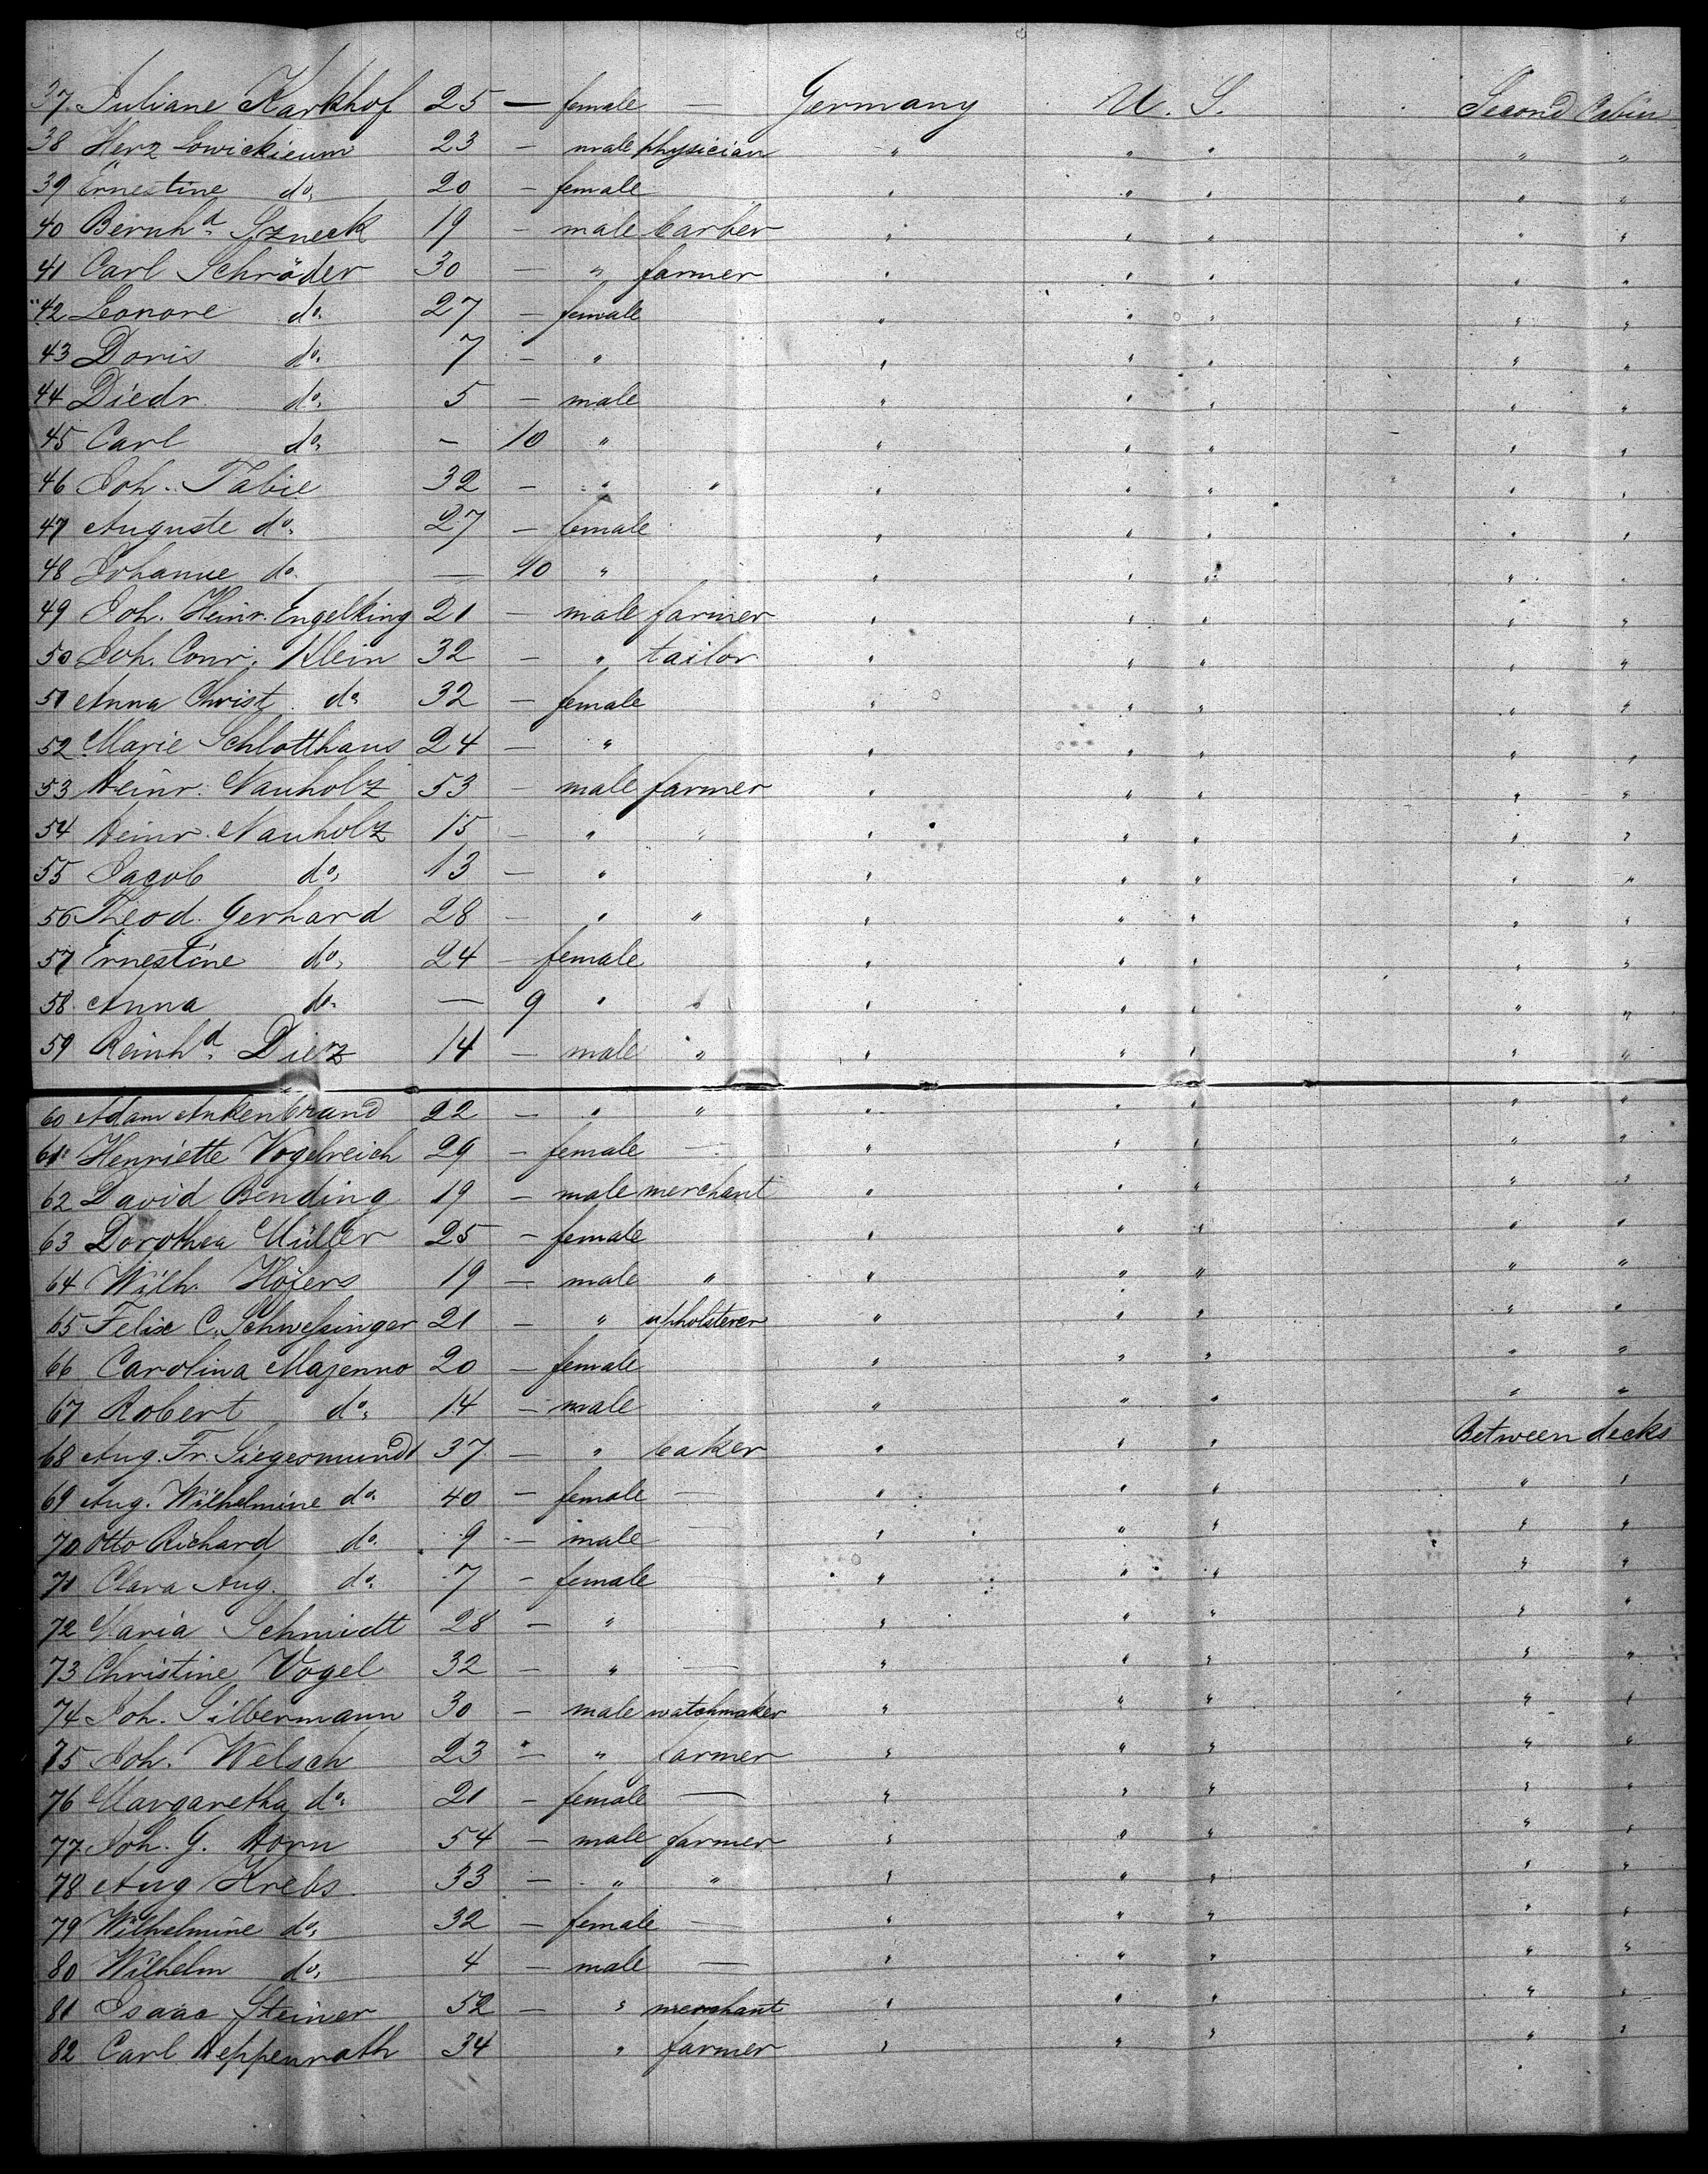 37 Juliane Karkhof 25 — female — Germany U. S. Second Cabin
38 Herz Lowickieum 23 - male physician " " " " "
39 Ernestine do. 20 - female " " " " "
40 Bernhd. Szneck 19 - male barber " " " " "
41 Carl Schröder 30 - " farmer " " " " "
42 Leonore do. 27 - female " " " " "
43 Doris do. 7 - " " " " " "
44 Diedr. do. 5 - male " " " " "
45 Carl do. - 10 " " " " " "
46 Joh. Tabie 32 - " " " " " " "
47 Auguste do. 27 - female " " " " "
48 Johanne do. — 10 " " " " " "
49 Joh. Heinr. Engelking 21 - male farmer " " " " "
50 Joh. Conr. Klein 32 - " tailor " " " " "
51 Anna Christ. do. 32 - female " " " " "
52 Marie Schlotthaus 24 - " " " " " "
53 Heinr. Nauholz 53 - male farmer " " " " "
54 Heinr. Nauholz 15 - " " " " " " "
55 Jacob do. 13 - " " " " " "
56 Theod. Gerhard 28 - " " " " " " "
57 Ernestine do. 24 - female " " " " "
58 Anna do. — 9 " " " " " " "
59 Reinhd. Diez 14 - male " " " " " "
60 Adam Ankenbrand 22 - " " " " " " "
61 Henriette Vogelreich 29 - female — " " " " "
62 David Bending 19 - male merchant " " " " "
63 Dorothea Müller 25 - female " " " " "
64 Wilh. Höfers 19 - male " " " " " "
65 Felix C. Schweſsinger 21 - " upholsterer " " " " "
66 Carolina Majenno 20 - female " " " " "
67 Robert do. 14 - male " " " " "
68 Aug. Fr. Siegesmundt 37 - " baker " " " Between decks
69 Aug. Wilhelmine do. 40 - female — " " " " "
70 Otto Richard do. 9 - male — " " " " "
71 Clara Aug. do. 7 - female " " " " "
72 Maria Schmidt 28 - " " " " " "
73 Christine Vogel 32 - " — " " " " "
74 Joh. Silbermann 30 - male watchmaker " " " " "
75 Joh. Welsch 23 - " farmer " " " " "
76 Margaretha do. 21 - female — " " " " "
77 Joh. G. Horn 54 - male farmer " " " " "
78 Aug Krebs 33 - " " " " " " "
79 Wilhelmine do. 32 - female — " " " " "
80 Wilhelm do. 4 - male — " " " " "
81 Isaac Steiner 52 - " merchant " " " " "
82 Carl Heppenrath 34 " farmer " " " " "